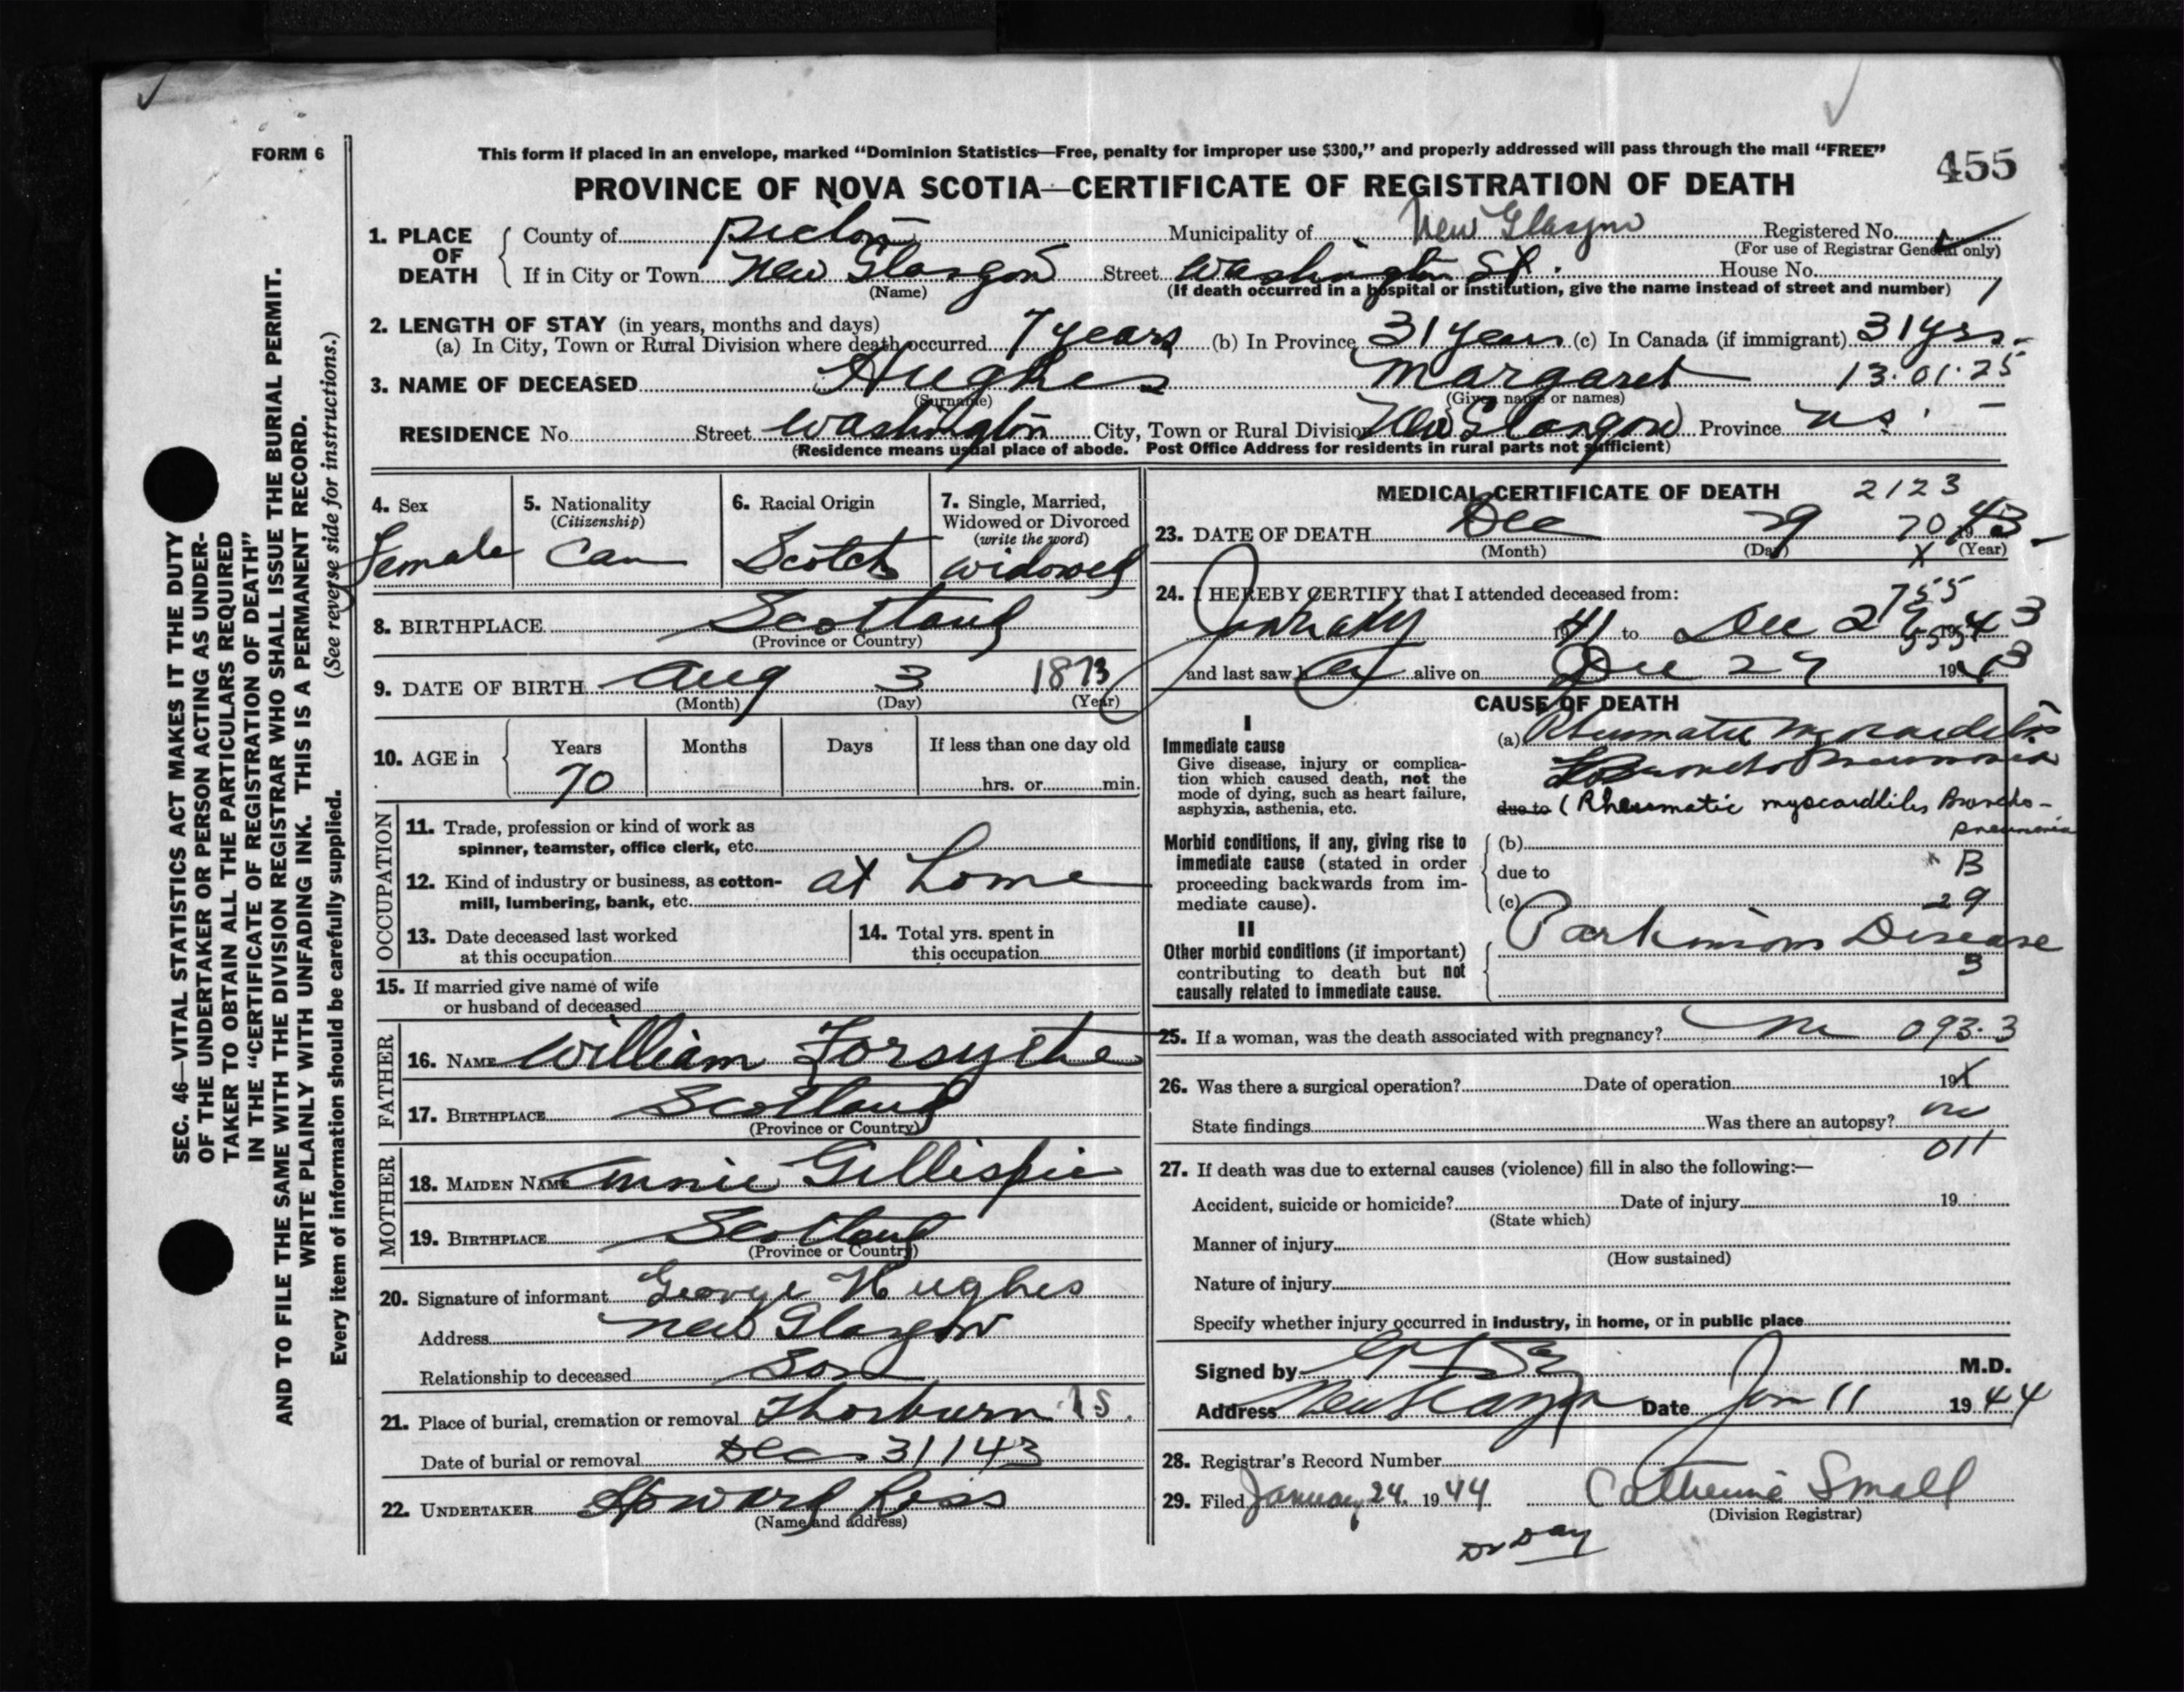 FORM 6
This form if placed in an envelope, marked “Dominion Statistics—Free, penalty for improper use $300,” and properly addressed will pass through the mail “FREE”
455
PROVINCE OF NOVA SCOTIA—CERTIFICATE OF REGISTRATION OF DEATH
1. PLACE OF DEATH
County of Pictou Municipality of New Glasgow Registered No.
(For use of Registrar General only)
If in City or Town New Glasgow Street Washington St. House No.
(Name) (If death occurred in a hospital or institution, give the name instead of street and number)
2. LENGTH OF STAY (in years, months and days)
(a) In City, Town or Rural Division where death occurred 7 years (b) In Province 31 years (c) In Canada (if immigrant) 31 yrs.
3. NAME OF DECEASED Hughes Margaret 13.01.25
(Surname) (Given name or names)
RESIDENCE No. Street Washington City, Town or Rural Division New Glasgow Province N.S.
(Residence means usual place of abode. Post Office Address for residents in rural parts not sufficient)
4. Sex
Female
5. Nationality
(Citizenship)
Can
6. Racial Origin
Scotch
7. Single, Married, Widowed or Divorced
(write the word)
widowed
8. BIRTHPLACE Scotland
(Province or Country)
9. DATE OF BIRTH Aug 3 1873
(Month) (Day) (Year)
10. AGE in
Years Months Days If less than one day old
70 hrs. or min.
OCCUPATION
11. Trade, profession or kind of work as
spinner, teamster, office clerk, etc.
12. Kind of industry or business, as cotton-
mill, lumbering, bank, etc.
at Home
13. Date deceased last worked
at this occupation
14. Total yrs. spent in
this occupation
15. If married give name of wife
or husband of deceased
FATHER
16. NAME William Forsythe
17. BIRTHPLACE Scotland
(Province or Country)
MOTHER
18. MAIDEN NAME Annie Gillispie
19. BIRTHPLACE Scotland
(Province or Country)
20. Signature of informant George Hughes
Address New Glasgow
Relationship to deceased Son
21. Place of burial, cremation or removal Thorburn
Date of burial or removal Dec 31/43
22. UNDERTAKER Howard Ross
(Name and address)
MEDICAL CERTIFICATE OF DEATH 2123
23. DATE OF DEATH Dec 29 70 1943
(Month) (Day) (Year)
24. I HEREBY CERTIFY that I attended deceased from: 755
January 1941 to Dec 29 1943
and last saw her alive on Dec 27 1943
CAUSE OF DEATH
I
Immediate cause
Give disease, injury or complica-
tion which caused death, not the
mode of dying, such as heart failure,
asphyxia, asthenia, etc.
(a) Rheumatic Myocarditis
Broncho Pneumonia
due to (Rheumatic myocarditis Broncho-
pneumonia
Morbid conditions, if any, giving rise to
immediate cause (stated in order
proceeding backwards from im-
mediate cause).
(b)
due to B
(c) 29
II
Other morbid conditions (if important)
contributing to death but not
causally related to immediate cause.
Parkinsons Disease
3
25. If a woman, was the death associated with pregnancy? no 093.3
26. Was there a surgical operation? Date of operation 19
State findings Was there an autopsy? no
011
27. If death was due to external causes (violence) fill in also the following:—
Accident, suicide or homicide? Date of injury 19
(State which)
Manner of injury
(How sustained)
Nature of injury
Specify whether injury occurred in industry, in home, or in public place
Signed by M.D.
Address New Glasgow Date Jan 11 1944
28. Registrar's Record Number
29. Filed January 24. 1944 Catherine Small
(Division Registrar)
Dr Day
SEC. 46—VITAL STATISTICS ACT MAKES IT THE DUTY
OF THE UNDERTAKER OR PERSON ACTING AS UNDER-
TAKER TO OBTAIN ALL THE PARTICULARS REQUIRED
IN THE “CERTIFICATE OF REGISTRATION OF DEATH”
AND TO FILE THE SAME WITH THE DIVISION REGISTRAR WHO SHALL ISSUE THE BURIAL PERMIT.
WRITE PLAINLY WITH UNFADING INK. THIS IS A PERMANENT RECORD.
Every item of information should be carefully supplied. (See reverse side for instructions.)